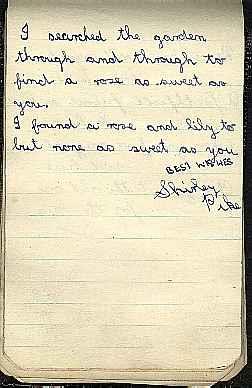 I searched the garden
through and through to
find a rose as sweet as
you.
I found a rose and lily to
but none as sweet as you
BEST WISHES
Shirley
Pike